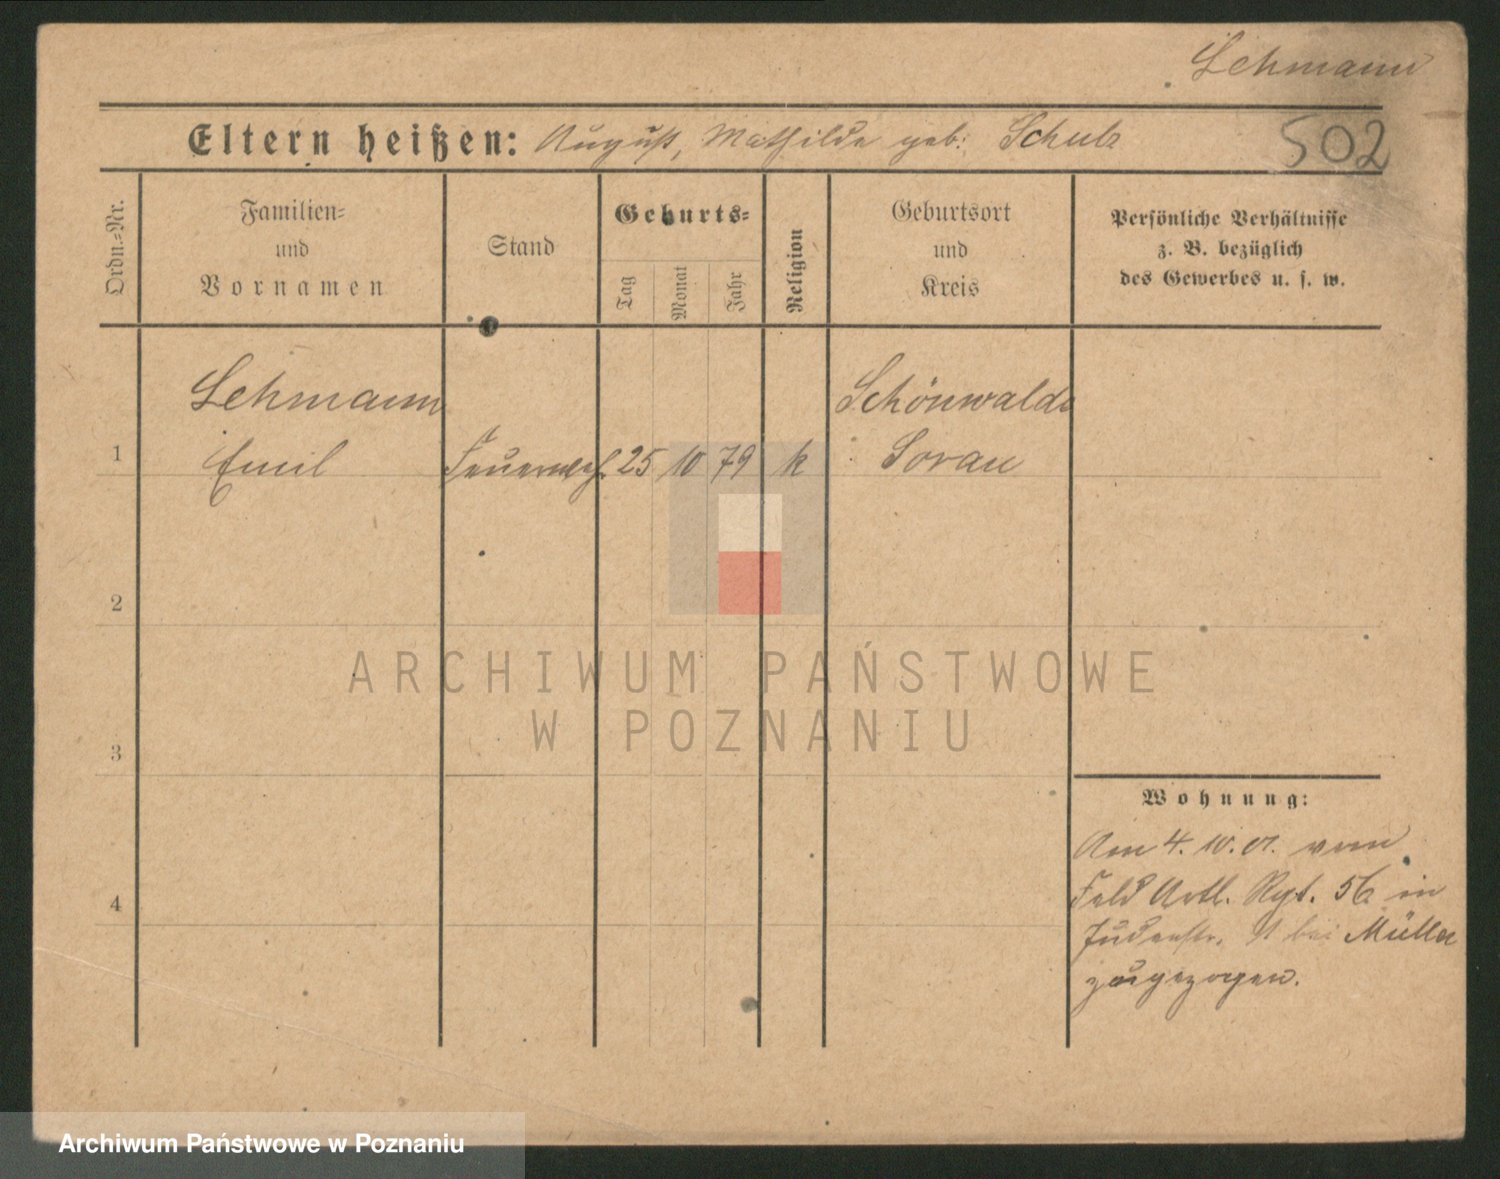 Lehmann
Eltern heißen: August, Mathilde geb. Schulz
502
Ordn.=Nr.
Familien=
und
Vornamen
Stand
Geburts=
Tag
Monat
Jahr
Religion
Geburtsort
und
Kreis
Persönliche Verhältnisse
z. B. bezüglich
des Gewerbes u. s. w.
Lehmann
Schönwalde
1 Emil Feuerwehr. 25 10 79 k Sorau
2
3
4
Wohnung:
Am 4. 10. 01. vom
Feld Artl. Rgt. 56 in
Judenstr. bei Müller
zugezogen.
ARCHIWUM PAŃSTWOWE
W POZNANIU
Archiwum Państwowe w Poznaniu